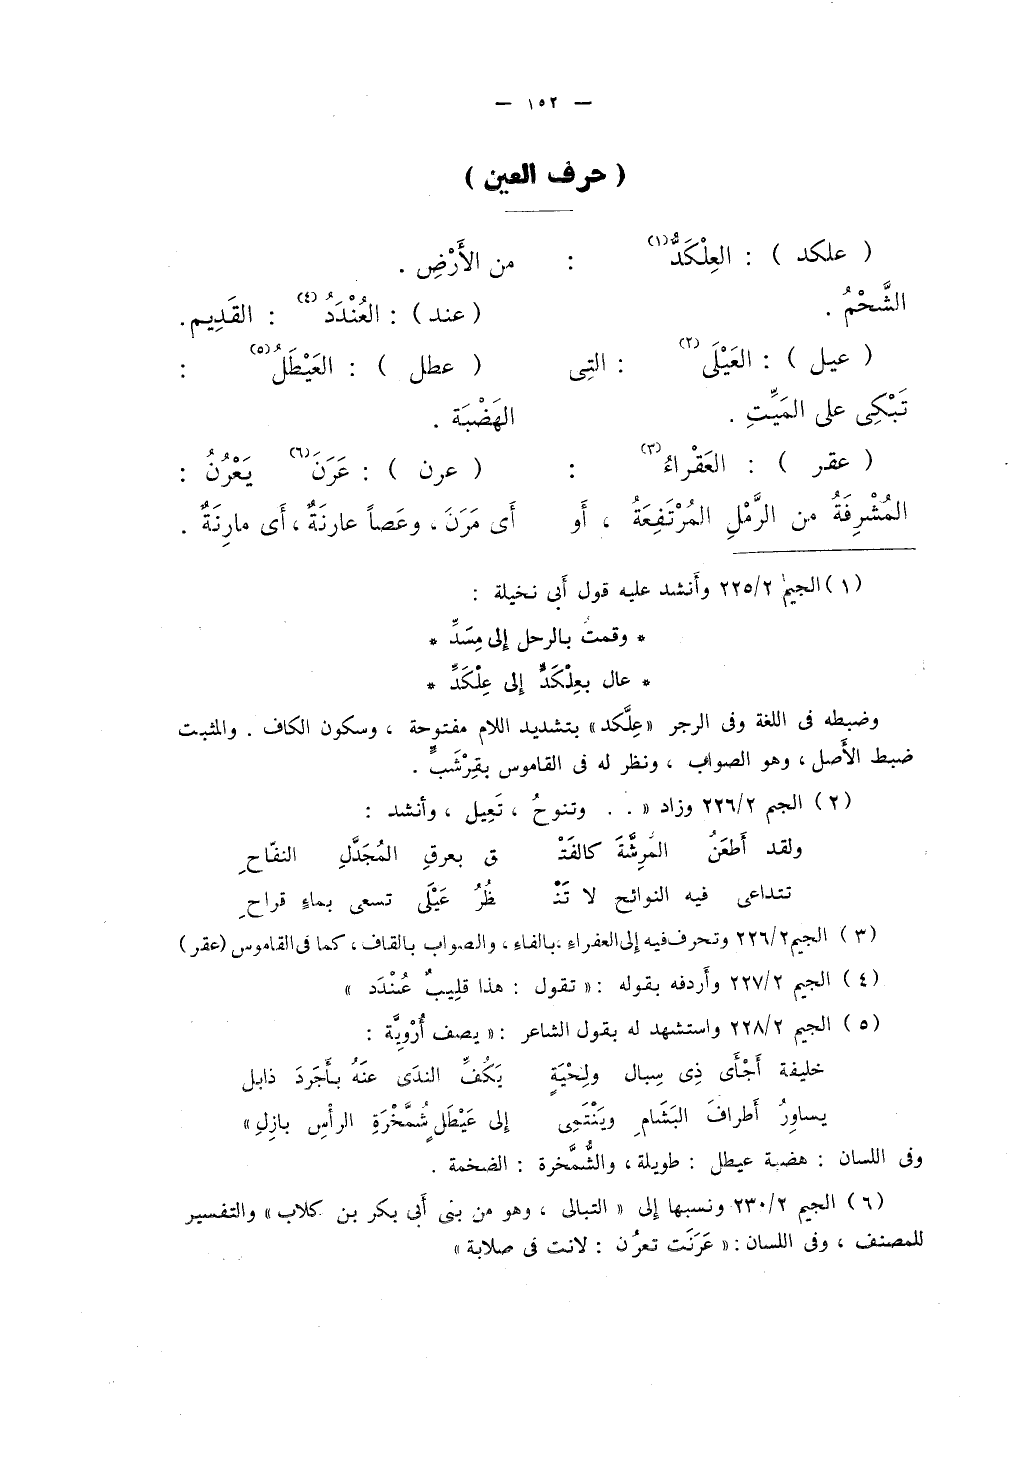 — ١٥٢ —
( حرف العين )
( علكد ) : العِلْكَدُّ(١) :
الشَّحْمُ .
( عيل ) : العَيْلَى(٢) : التِى
تَبْكِى على المَيِّتِ .
( عقر ) : العَقْراءُ(٣) :
المُشْرِفَةُ من الرَّمْلِ المُرْتَفِعَةُ ، أَو
من الأَرْضِ .
( عند ) : العُنْدَدُ(٤) : القَدِيم.
( عطل ) : العَيْطَلُ(٥) :
الهَضْبَة .
( عرن ) : عَرَنَ(٦) يَعْرُنُ :
أَى مَرَنَ ، وعَصاً عارنَةٌ ، أَى مارِنَةٌ .
(١) الجيم ٢٢٥/٢ وأَنشد عليه قول أَبى نخيلة :
* وقمتُ بالرحل إلى مِسَدِّ *
* عال بعِلْكَدٍّ إلى عِلْكَدِّ *
وضبطه فى اللغة وفى الرجر «عِلَّكد» بتشديد اللام مفتوحة ، وسكون الكاف . والمثبت
ضبط الأَصل ، وهو الصواب ، ونظر له فى القاموس بقِرْشَبٍّ .
(٢) الجيم ٢٢٦/٢ وزاد « . . وتنوحُ ، تَعِيل ، وأنشد :
ولقد أَطعَنُ المُرِشَّةَ كالفَتْـ ـق بعرقِ المُجَدَّلِ النفّاحِ
تتداعى فيه النوائح لا تَنْـ ـظُرُ عَيْلَى تسعى بماءٍ قراحِ
(٣) الجيم ٢٢٦/٢ وتحرف فيه إلى العفراء بالفاء ، والصواب بالقاف ، كما فى القاموس (عقر)
(٤) الجيم ٢٢٧/٢ وأَردفه بقوله : « تقول : هذا قلِيبٌ عُنْدَد »
(٥) الجيم ٢٢٨/٢ واستشهد له بقول الشاعر : « يصف أُرْوِيَّة :
خليفة أَجْأَى ذِى سِبال ولِحْيَةٍ يَكُفّ الندَى عنَهُ بأَجَردَ ذابل
يساوِرُ أَطرافَ البَشَامِ ويَنْتَمِى إلى عَيْطَلٍ شُمَّخْرَةِ الرأْسِ بازِلِ»
وفى اللسان : هضبة عيطل : طويلة ، والشُّمَّخرة : الضخمة .
(٦) الجيم ٢٣٠/٢ ونسبها إلى « التبالى ، وهو من بنى أَبى بكر بن كلاب» والتفسير
للمصنف ، وفى اللسان : « عَرَنَت تعرُن : لانت فى صلابة »